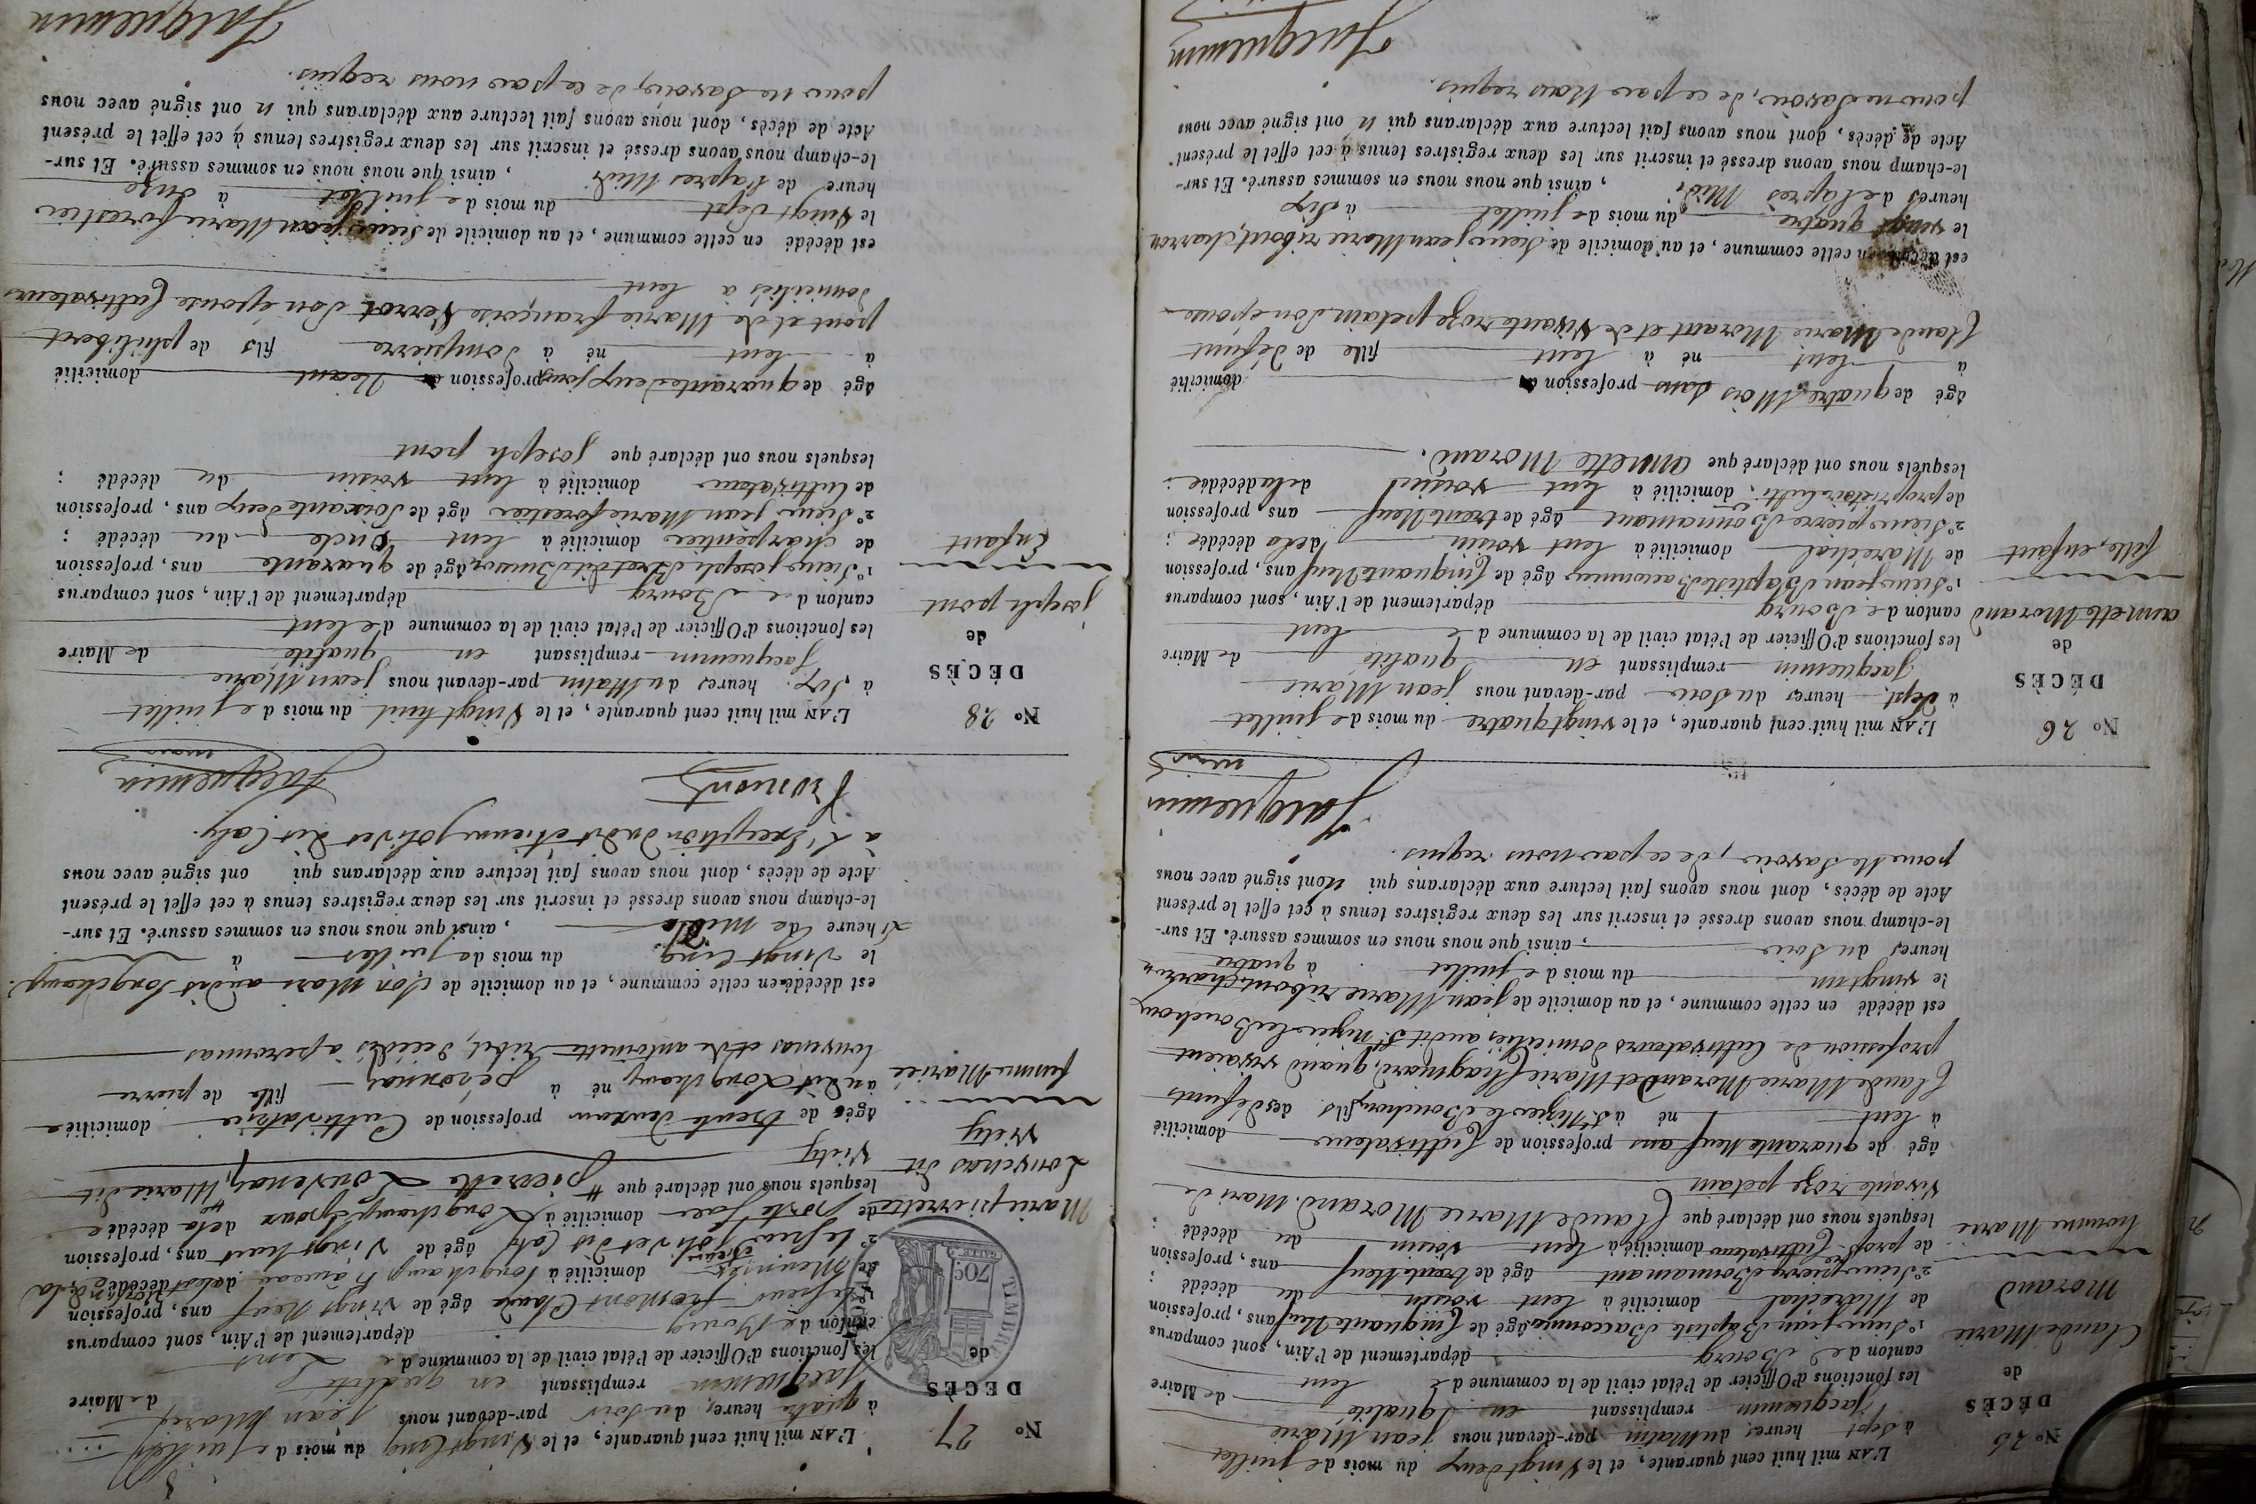 N° 25
DÉCÈS
de
Claude Marie
Morand
homme Marié
L'AN mil huit cent quarante, et le vingt deux du mois de juillet
à sept heures du Matin par-devant nous jean Marie
Jacquemin remplissant en qualité de Maire
les fonctions d'Officier de l'état civil de la commune de Lent
canton de Bourg département de l'Ain, sont comparus
1° Sieur jean Baptiste Baconnier âgé de Cinquante Neuf ans, profession
de Maréchal domicilié à Lent voisin du décédé ;
2° Sieur pierre Bonnamant âgé de trente Neuf ans, profession
de Cultivateur domicilié à Lent voisin du décédé :
lesquels nous ont déclaré que Claude Marie Morand Mari de
Vivante roze petain
âgé de quarante Neuf ans profession de Cultivateur domicilié
à Lent né à St Nizier le Bouchoux fils des défunts
Claude Marie Morand et Marie Chagniard, quand vivaient
profession de Cultivateurs domiciliés audit St Nizier le Bouchoux
est décédé en cette commune, et au domicile de jean Marie ribout, charron
le vingt un du mois de juillet à quatre
heures du soir, ainsi que nous nous en sommes assuré. Et sur-
le-champ nous avons dressé et inscrit sur les deux registres tenus à cet effet le présent
Acte de décès, dont nous avons fait lecture aux déclarans qui n'ont signé avec nous
pour Ne Savoir, de ce par nous requis.
Jacquemin
maire
N° 26
DÉCÈS
de
annette Morand
fille, enfant
L'AN mil huit cent quarante, et le vingt quatre du mois de juillet
à Sept heures du Soir par-devant nous jean Marie
Jacquemin remplissant en qualité de Maire
les fonctions d'Officier de l'état civil de la commune de Lent
canton de Bourg département de l'Ain, sont comparus
1° Sieur jean Baptiste Baconnier âgé de Cinquante Neuf ans, profession
de Maréchal domicilié à Lent voisin de la décédée ;
2° Sieur pierre Bonnamant âgé de trente Neuf ans, profession
de propriétaire cultiv. domicilié à Lent voisin de la décédée :
lesquels nous ont déclaré que annette Morand.
âgé de quatre Mois sans profession domicilié
à Lent né à Lent fille de défunt
Claude Marie Morand et de Vivante roze petain Son épouse
est décédé en cette commune, et au domicile de Sieur jean Marie ribout, charron
le vingt quatre du mois de juillet à Six
heures de l'après Midi, ainsi que nous nous en sommes assuré. Et sur-
le-champ nous avons dressé et inscrit sur les deux registres tenus à cet effet le présent
Acte de décès, dont nous avons fait lecture aux déclarans qui n'ont signé avec nous
pour ne Savoir, de ce par Nous requis.
Jacquemin
N° 27
DÉCÈS
de
Marie pierrette
Louvenas dit
Vity
femme Mariée
TIMBRE
70c
L'AN mil huit cent quarante, et le Vingt Cinq du mois de juillet
à quatre heures du soir par-devant nous jean Marie
Jacquemin remplissant en qualité de Maire
les fonctions d'Officier de l'état civil de la commune de Lent
canton de Bourg département de l'Ain, sont comparus
1° Le sieur fromont Claude âgé de vingt Neuf ans, profession
de Meunier domicilié à Longchamp
2° Le sieur Etienne Jolivet dit Caty âgé de Vingt huit ans, profession
de porte faee domicilié à Longchamp Epoux de la décédée
lesquels nous ont déclaré que pierrette Louvenas, Marie dit
Vity
âgée de trente deux ans profession de Cultivatrice domiciliée
audit Longchamp né à peronnas fille de pierre
Louvenas et de antoinette Ribet, décédés à peronnas
est décédée en cette commune, et au domicile de Son Mari audit Longchamp.
le vingt Cinq du mois de juillet à
heure de midi, ainsi que nous nous en sommes assuré. Et sur-
le-champ nous avons dressé et inscrit sur les deux registres tenus à cet effet le présent
Acte de décès, dont nous avons fait lecture aux déclarans qui ont signé avec nous
à L'Exception dudit étienne Jolivet dit Caty.
Fromont Jacquemin
maire
N° 28
DÉCÈS
de
joseph pont
Enfant
L'AN mil huit cent quarante, et le Vingt huit du mois de juillet
à Six heures du Matin par-devant nous jean Marie
Jacquemin remplissant en qualité de Maire
les fonctions d'Officier de l'état civil de la commune de Lent
canton de Bourg département de l'Ain, sont comparus
1° Sieur joseph Bretet dit Buisson âgé de quarante ans, profession
de Charpentier domicilié à Lent Oncle du décédé ;
2° Sieur jean Marie forestier âgé de Soixante deux ans, profession
de Cultivateur domicilié à Lent voisin du décédé :
lesquels nous ont déclaré que joseph pont
âgé de quarante deux jours profession Néant domicilié
à Lent né à Dompierre fils de philibert
pont et de Marie françoise Verrot Son épouse Cultivateurs
domiciliés à Lent
est décédé en cette commune, et au domicile de Sieur jean Marie forestier
le Vingt Sept du mois de juillet à Onze
heure de l'après Midi, ainsi que nous nous en sommes assuré. Et sur-
le-champ nous avons dressé et inscrit sur les deux registres tenus à cet effet le présent
Acte de décès, dont nous avons fait lecture aux déclarans qui n'ont signé avec nous
pour ne Savoir, de ce par nous requis.
Jacquemin